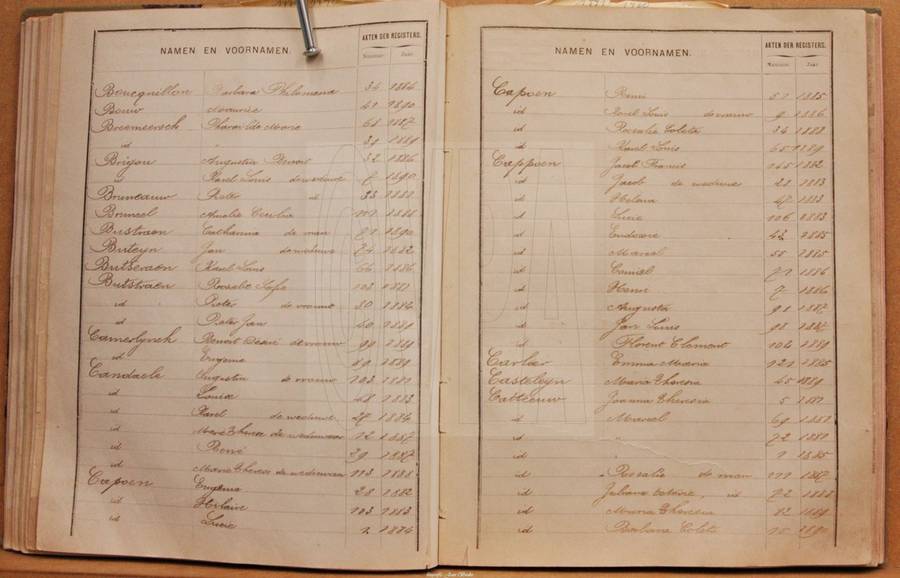 NAMEN EN VOORNAMEN. AKTEN DER REGISTERS.
Nummer. Jaar.
Boucquillon Barbara Philomena 34 1884
Bouw 41 1890
Breemeersch 61 1887
id 1889
Brijon Augustin Benoit 32 1886
id Karel Louis de weduwe 7 1890
Bruneauw Pieter id 33 1888
Bruneel Amelie Cecilia 1886
Bustraen Catharina de man 71 1890
Buteyn Jan de weduwe 74 1882
Butseraen Karel Louis 66 1886
Butstraen Rosalie Sofie 103 1881
id Pieter de vrouw 30 1884
id Pieter Jan 40 1889
Camerlynck Benoit Désiré de vrouw 90 1889
id Eugenie 89 1889
Candaele Augustin de vrouw 103 1881
id Louise 48 1883
id Karel de weduwe 27 1884
id Marie Therese de weduwnaar 12 1887
id René 39 1887
id Marie Therese de weduwnaar 113 1888
Capoen Eugenie 28 1882
id Hilaire 103 1883
id Lucie 2 1884
NAMEN EN VOORNAMEN. AKTEN DER REGISTERS.
Nummer. Jaar.
Capoen Remi 51 1885
id Karel Louis de vrouw 9 1886
id Rosalie Coleta 34 1888
id Karel Louis 65 1889
Cappoen Jacob Francis 1882
id Jacob de weduwe 28 1883
id Helena 47 1883
id Lucie 106 1883
id 42 1885
id Marcel 55 1885
id Camiel 71 1886
id Henri 7 1886
id Augusta 91 1887
id Jan Louis 98 1887
id Florent Clement 104 1889
Carlier Emma Maria 121 1885
Casteleyn Maria Theresia 45 1889
Catteeuw Joanna Theresia 5 1881
id Marcel 69 1881
id 72 1881
id 1 1885
id Rosalie de man 111 1887
id Juliana id 72 1888
id Maria Theresia 82 1889
id Barbara Coleta 15 1890